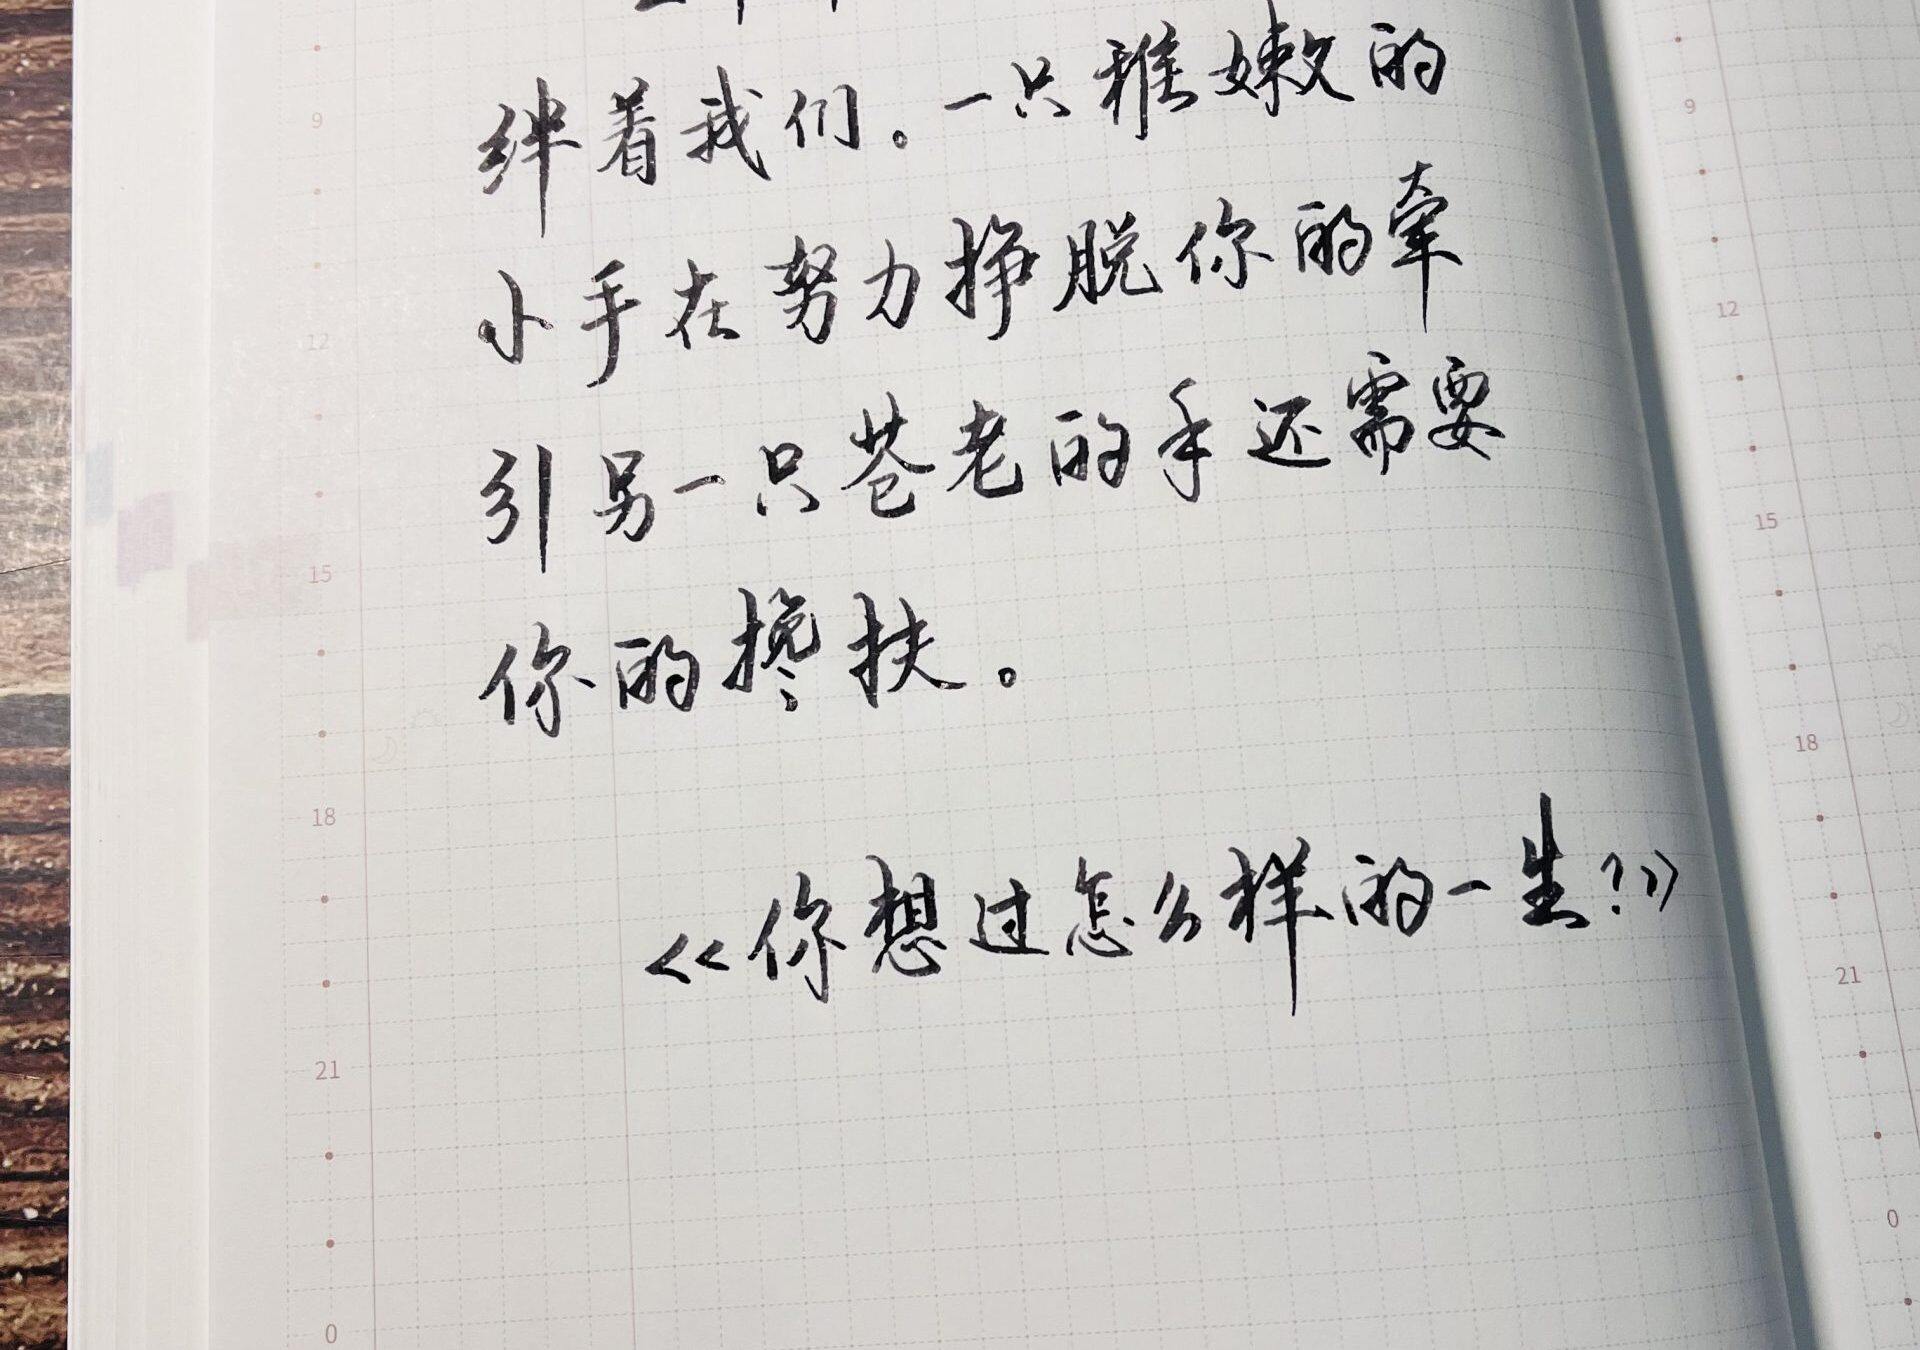 绊着我们。一只稚嫩的
小手在努力挣脱你的牵
引另一只苍老的手还需要
你的搀扶。
《你想过怎么样的一生?》
9
12
15
18
21
0
9
12
15
18
21
0